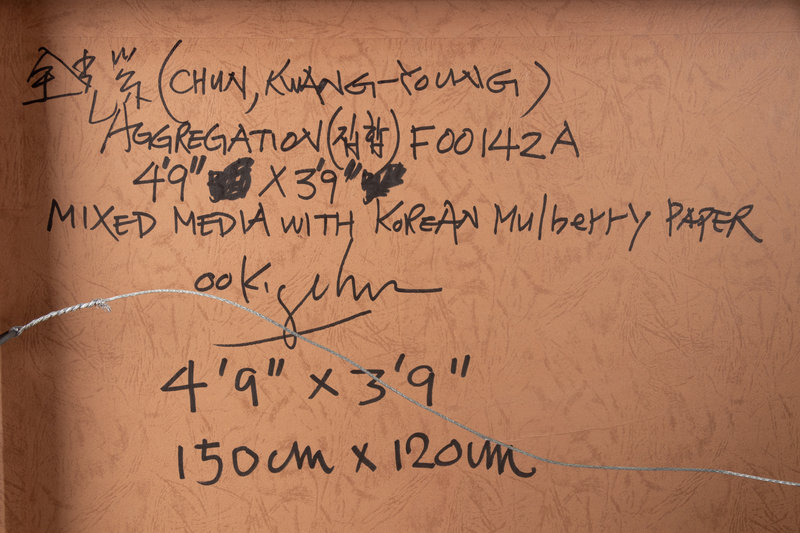 全光榮 (CHUN, KWANG-YOUNG)
AGGREGATION(집합) F00142A
4'9" X 3'9"
MIXED MEDIA WITH KOREAN Mulberry PAPER
00 K.
4'9" X 3'9"
150cm X 120cm